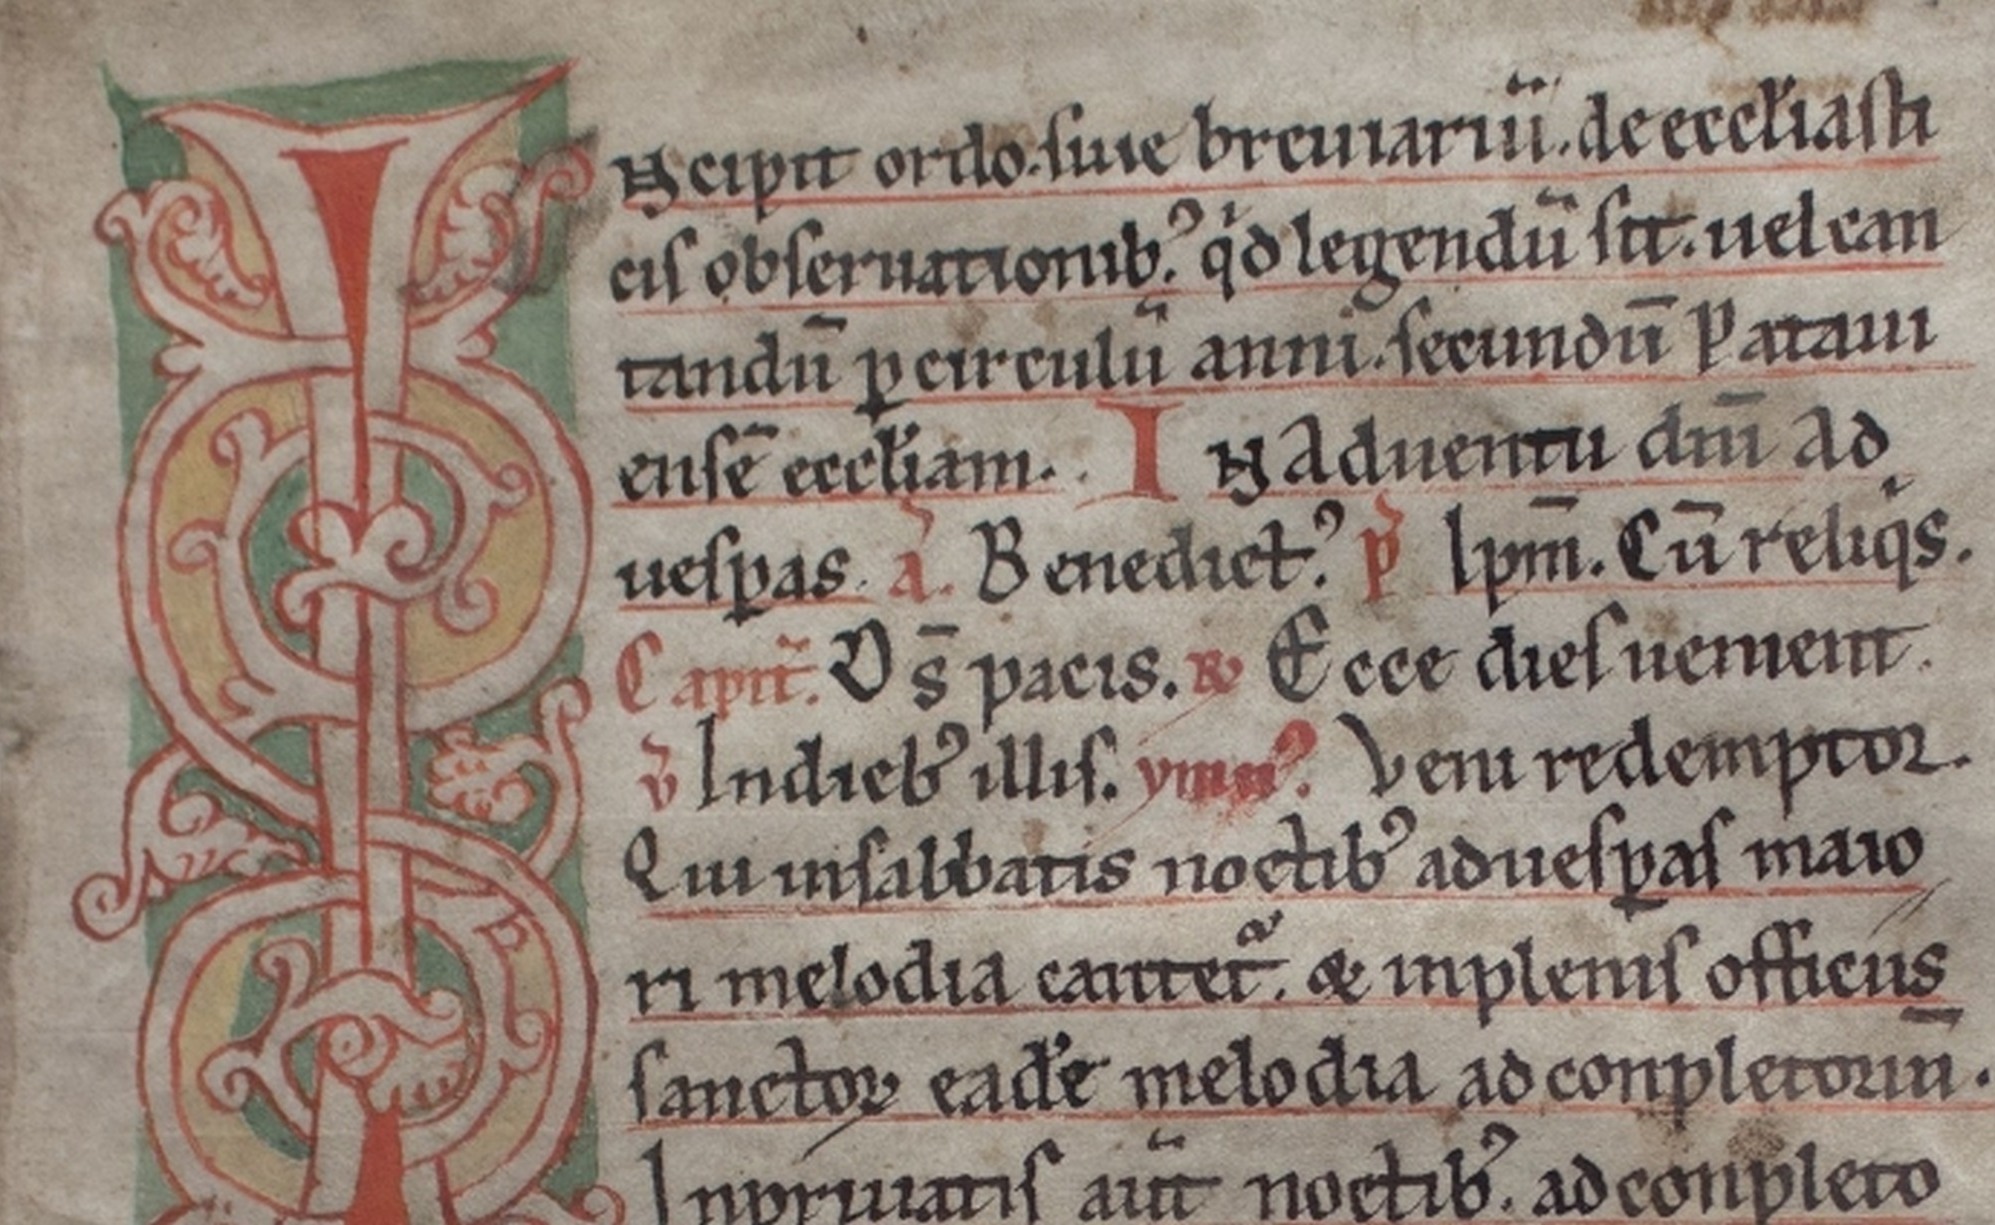 Incipit ordo. siue breuiariū. de ecctiasti
cis obseruationibꝰ. qͥd legendū sit. uel can
tandū ꝑ circulū anni. secundū Pataui
ensē ecctiam. In Aduentu dm̄ Ad
uesꝑas. a. Benedictꝰ. p̄ Ipm̄. Cū reliqͥs.
Capit̄. Ds̄ pacis. ℞ Ecce dies uenient.
v̄ In diebꝰ illis. ymnꝰ. Veni redemptor.
Qui in sabbatis noctibꝰ ad uesꝑas maio
ri melodia cantet᷑. & in plenis officiis
sanctoꝝ eadē melodia ad conpletoriū.
In priuatis aut̄ noctibꝰ. ad conpleto